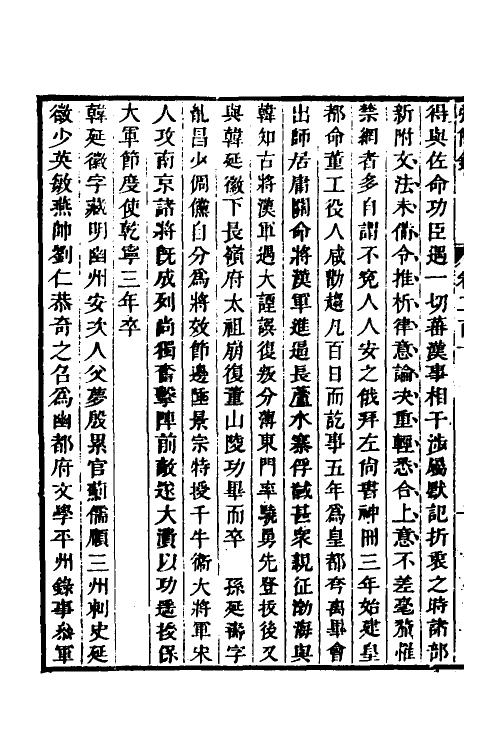 得與佐命功臣遇一切蕃漢事相干涉屬默記折衷之時諸部
新附文法未備令推析律意論決重輕悉合上意不差毫釐罹
禁網者多自謂不冤人人安之俄拜左尙書神冊三年始建皇
都命董工役人咸勸趨凡百日而訖事五年為皇都夸离畢會
出師居庸關命將漢軍進逼長蘆水寨俘馘甚衆親征渤海與
韓知古將漢軍遇大諲譔復叛分薄東門率驍勇先登拔後又
與韓延徽下長嶺府太祖崩復董山陵功畢而卒　孫延壽字
胤昌少倜儻自分為將效節邊陲景宗特授千牛衛大將軍宋
人攻南京諸將旣成列尚獨奮擊陣前敵遂大潰以功遙授保
大軍節度使乾寧三年卒
韓延徽字藏明幽州安次人父夢殷累官薊儒順三州刺史延
徽少英敏燕帥劉仁恭奇之召為幽都府文學平州錄事參軍